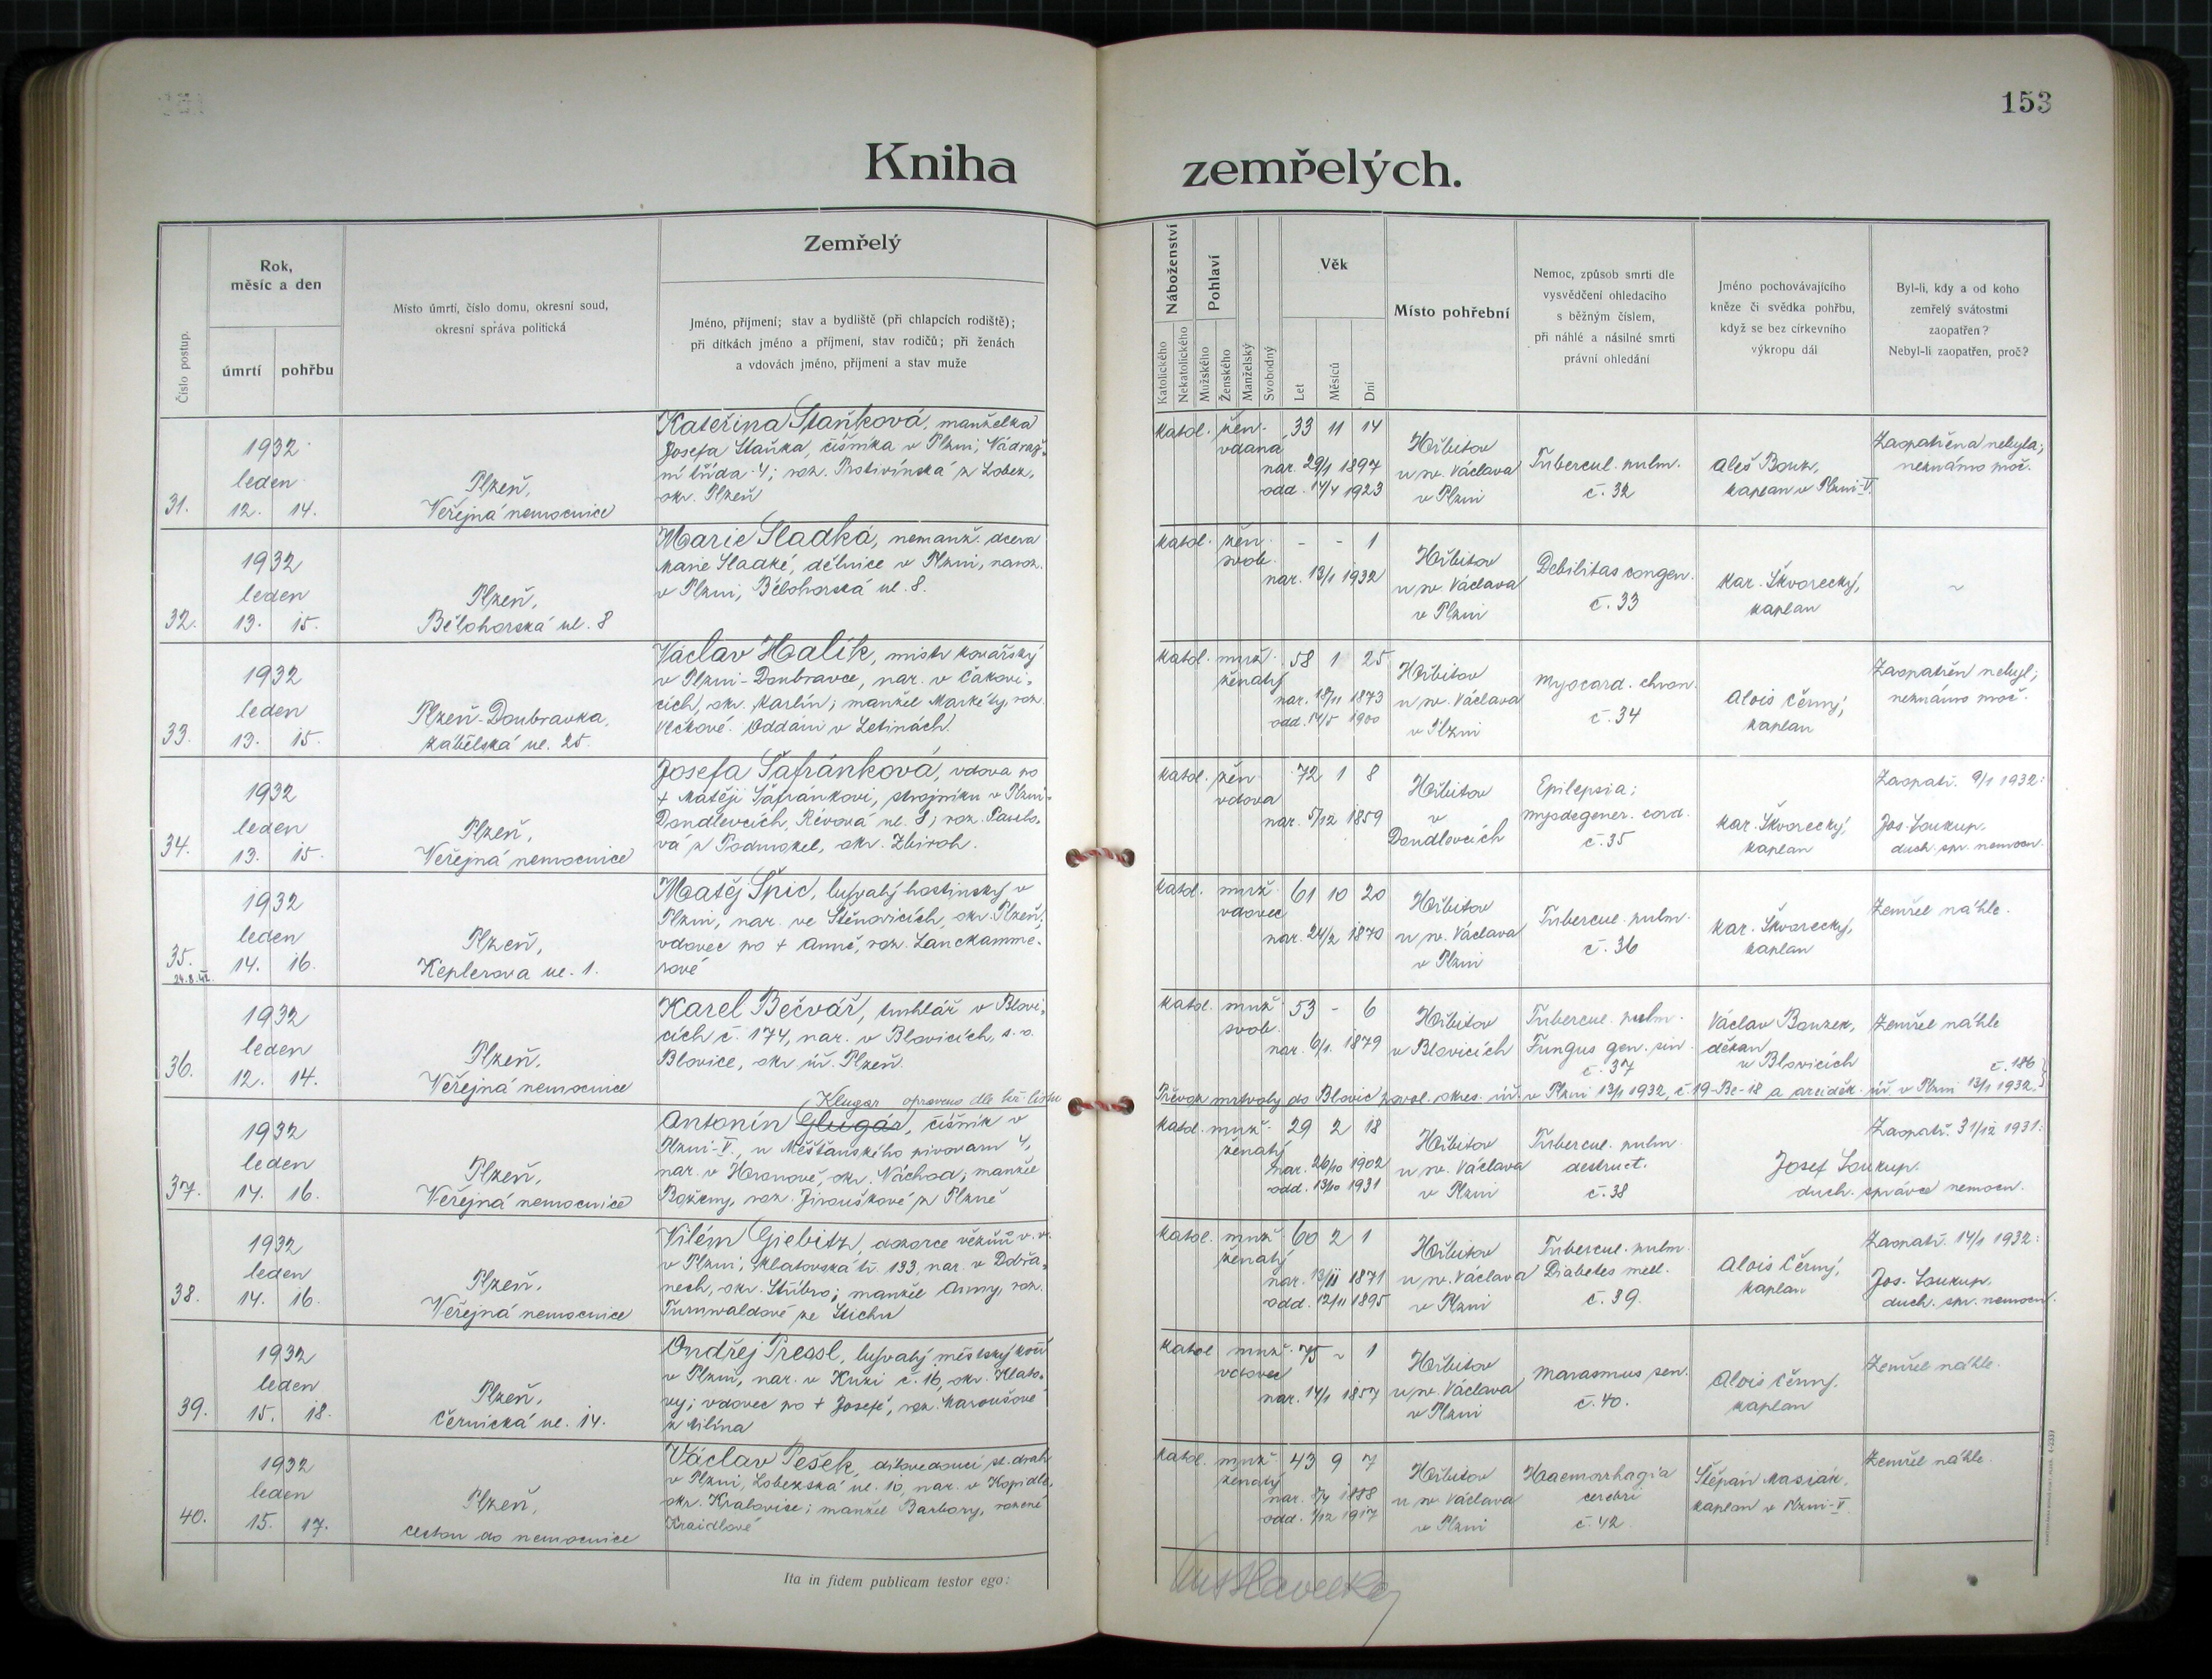 153
Kniha zemřelých.
Číslo postup.
Rok,
měsíc a den
úmrtí
pohřbu
Místo úmrtí, číslo domu, okresní soud,
okresní správa politická
Zemřelý
Jméno, příjmení; stav a bydliště (při chlapcích rodiště);
při dítkách jméno a příjmení, stav rodičů; při ženách
a vdovách jméno, příjmení a stav muže
Náboženství
Katolického
Nekatolického
Pohlaví
Mužského
Ženského
Manželský
Svobodný
Věk
Let
Měsíců
Dní
Místo pohřební
Nemoc, způsob smrti dle
vysvědčení ohledacího
s běžným číslem,
při náhlé a násilné smrti
právní ohledání
Jméno pochovávajícího
kněze či svědka pohřbu,
když se bez církevního
výkropu dál
Byl-li, kdy a od koho
zemřelý svátostmi
zaopatřen?
Nebyl-li zaopatřen, proč?
31.
1932
leden
12. 14.
Plzeň,
Veřejná nemocnice
Kateřina Staňková, manželka
Josefa Staňka, číšníka v Plzni, Nádraž-
ní třída 4; roz. Protivínská z Lobez,
okr. Plzeň
katol. žen. 33 11 14
vdaná
nar. 29/1 1897
odd. 14/4 1923
Hřbitov
u sv. Václava
v Plzni
Tubercul. pulm.
č. 32
Aleš Bouz,
kaplan v Plzni-V.
Zaopatřena nebyla;
neznámo proč.
32.
1932
leden
13. 15.
Plzeň,
Bělohorská ul. 8
Marie Sladká, nemanž. dcera
Marie Sladké, dělnice v Plzni, naroz.
v Plzni, Bělohorská ul. 8.
katol. žen. - - 1
svob.
nar. 13/1 1932
Hřbitov
u sv. Václava
v Plzni
Debilitas congen.
č. 33
Kar. Škvorecký,
kaplan
~
33.
1932
leden
13. 15.
Plzeň-Doubravka,
Zábělská ul. 25.
Václav Halík, mistr kovářský
v Plzni-Doubravce, nar. v Čakovi-
cích, okr. Karlín; manžel Markéty, roz.
Vlčkové. Oddáni v Letinách.
katol. muž. 58 1 25
ženatý
nar. 18/11 1873
odd. 14/5 1900
Hřbitov
u sv. Václava
v Plzni
Myocard. chron.
č. 34
Alois Černý,
kaplan
Zaopatřen nebyl;
neznámo proč.
34.
1932
leden
13. 15.
Plzeň,
Veřejná nemocnice
Josefa Šafránková, vdova po
+ Matěji Šafránkovi, strojníku v Plzni-
Doudlevcích, Révová ul. 8; roz. Pavlo-
vá z Podmokel, okr. Zbiroh.
katol. žen 72 1 8
vdova
nar. 5/12 1859
Hřbitov
v
Doudlevcích
Epilepsia;
myodegener. cord.
č. 35
Kar. Škvorecký,
kaplan
Zaopatř. 9/1 1932:
Jos. Soukup,
duch. spr. nemocn.
35.
24.8.42.
1932
leden
14. 16.
Plzeň,
Keplerova ul. 1.
Matěj Špic, bývalý hostinský v
Plzni, nar. ve Štěnovicích, okr. Plzeň,
vdovec po + Anně, roz. Lanckamme-
rové
katol. muž 61 10 20
vdovec
nar. 24/2 1870
Hřbitov
u sv. Václava
v Plzni
Tubercul. pulm.
č. 36
Kar. Škvorecký,
kaplan
Zemřel náhle.
36.
1932
leden
12. 14.
Plzeň,
Veřejná nemocnice
Karel Bečvář, truhlář v Blovi-
cích č. 174, nar. v Blovicích, s. o.
Blovice, okr. úř. Plzeň.
katol. muž 53 - 6
svob.
nar. 6/1. 1879
Hřbitov
v Blovicích
Tubercul. pulm.
Fungus gen. sin.
č. 37
Václav Bouzek,
děkan
v Blovicích
Zemřel náhle
č. 186
Převoz mrtvoly do Blovic povol. okres. úř. v Plzni 13/1 1932, č. 19-Be-18 a arciděk. úř. v Plzni 13/1 1932.
37.
1932
leden
14. 16.
Plzeň,
Veřejná nemocnice
Klugar opraveno dle kř. listu
Antonín Glugár, číšník v
Plzni-V., u Měšťanského pivovaru 4,
nar. v Hronově, okr. Náchod; manžel
Boženy, roz. Jirouškové z Plzně
katol. muž. 29 2 18
ženatý
nar. 26/10 1902
odd. 13/10 1931
Hřbitov
u sv. Václava
v Plzni
Tubercul. pulm.
destruct.
č. 38
Josef Soukup,
duch. správce nemocn.
Zaopatř. 31/12 1931:
38.
1932
leden
14. 16.
Plzeň,
Veřejná nemocnice
Vilém Giebitz, dozorce vězňů v. v.
v Plzni, Klatovská tř. 133, nar. v Dobřa-
nech, okr. Stříbro; manžel Anny, roz.
Turnwaldové ze Stichu
katol. muž 60 2 1
ženatý
nar. 13/11 1871
odd. 12/11 1895
Hřbitov
u sv. Václava
v Plzni
Tubercul. pulm.
Diabetes mell.
č. 39.
Alois Černý,
kaplan
Zaopatř. 14/1 1932:
Jos. Soukup,
duch. spr. nemocn.
39.
1932
leden
15. 18.
Plzeň,
Černická ul. 14.
Ondřej Pressl, bývalý městský kočí
v Plzni, nar. v Kříži č. 16, okr. Klato-
vy; vdovec po + Josefě, roz. Karoušové
z Milína
katol. muž. 75 ~ 1
vdovec
nar. 14/1 1857
Hřbitov
u sv. Václava
v Plzni
Marasmus sen.
č. 40.
Alois Černý,
kaplan
Zemřel náhle.
40.
1932
leden
15. 17.
Plzeň,
cestou do nemocnice
Václav Pešek, dílovedoucí st. drah
v Plzni, Lobezská ul. 10, nar. v Hopidle,
okr. Kralovice; manžel Barbory, rozené
Kraidlové
katol. muž 43 9 7
ženatý
nar. 8/4 1888
odd. 1/12 1917
Hřbitov
u sv. Václava
v Plzni
Haemorhagia
cerebri
č. 42.
Štěpán Masiár,
kaplan v Plzni-V.
Zemřel náhle.
Ita in fidem publicam testor ego: